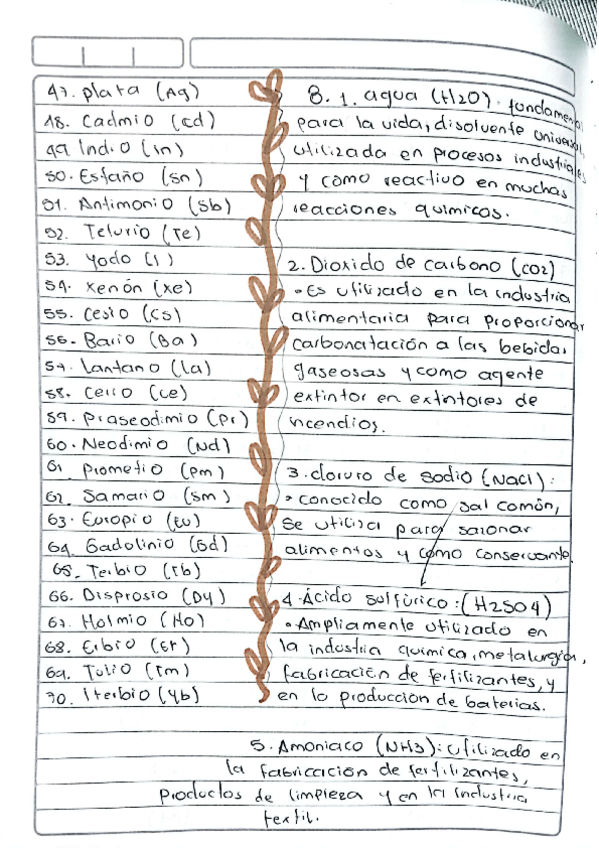 47. plata (Ag)
48. Cadmio (Cd)
49 Indio (In)
50. Estaño (Sn)
51. Antimonio (Sb)
52. Telurio (Te)
53. Yodo (I)
54. Xenón (Xe)
55. Cesio (Cs)
56. Bario (Ba)
57. Lantano (La)
58. Cerio (Ce)
59. Praseodimio (Pr)
60. Neodimio (Nd)
61 Prometio (Pm)
62. Samario (Sm)
63. Europio (Eu)
64. Gadolinio (Gd)
65. Terbio (Tb)
66. Disprosio (Dy)
67. Holmio (Ho)
68. Erbio (Er)
69. Tulio (Tm)
70. Iterbio (Yb)
8. 1. agua (H2O). fundamental
para la vida, disolvente universal,
utilizada en procesos industriales
y como reactivo en muchas
reacciones quimicos.
2. Dioxido de carbono (CO2)
• Es utilizado en la industria
alimentaria para proporcionar
carbonatación a las bebidas
gaseosas y como agente
extintor en extintores de
incendios.
3. cloruro de sodio (NaCl):
• conocido como sal común,
se utiliza para sazonar
alimentos y como conservante.
4. Ácido sulfúrico: (H2SO4)
• Ampliamente utilizado en
la industria quimica, metalurgia,
fabricación de fertilizantes, y
en la producción de baterias.
5. Amoniaco (NH3): utilizado en
la fabricación de fertilizantes,
productos de limpieza y en la industria
textil.